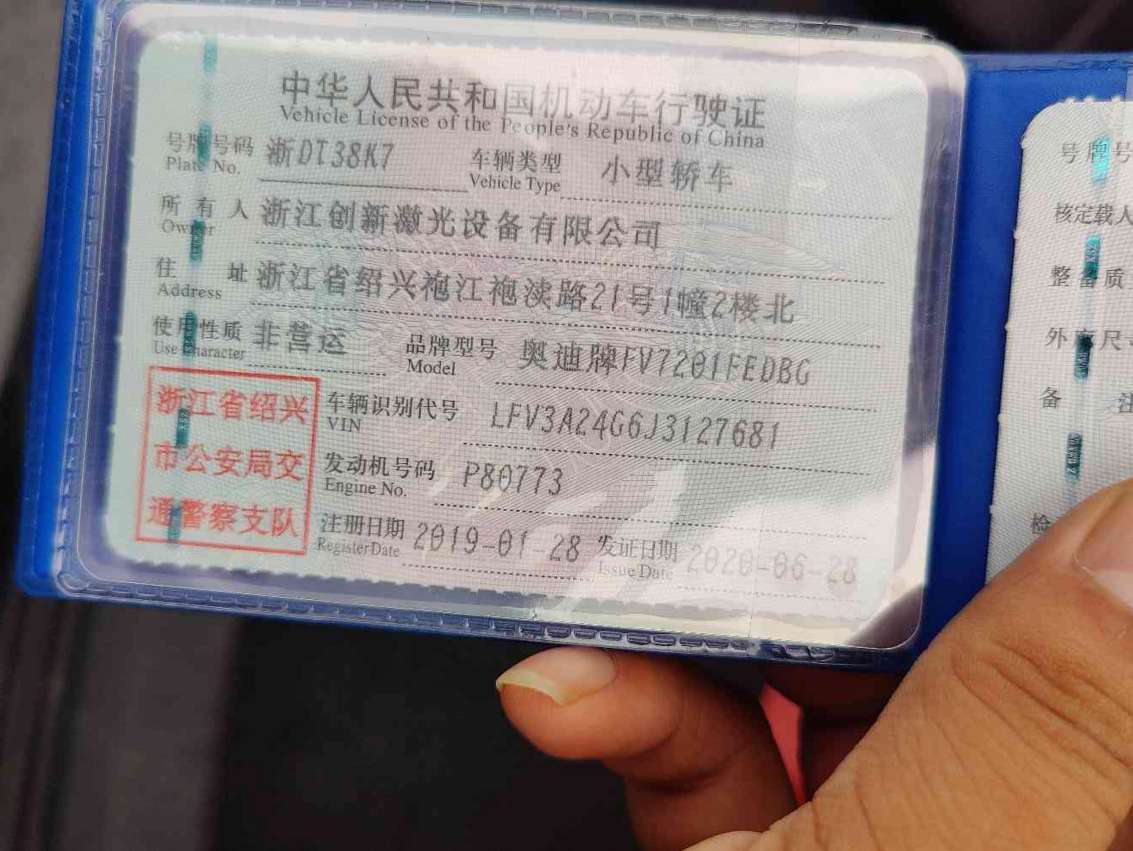 中华人民共和国机动车行驶证
Vehicle License of the People's Republic of China
号牌号码 浙DT38K7 车辆类型 小型轿车
Plate No. Vehicle Type
所有人 浙江创新激光设备有限公司
Owner
住址 浙江省绍兴袍江袍渎路21号1幢2楼北
Address
使用性质 非营运 品牌型号 奥迪牌FV7201FEDBG
Use Character Model
浙江省绍兴
市公安局交
通警察支队
车辆识别代号 LFV3A24G6J3127681
VIN
发动机号码 P80773
Engine No.
注册日期 2019-01-28 发证日期 2020-06-28
Register Date Issue Date
号牌号
核定载人
整备质
外廓尺
备注
检